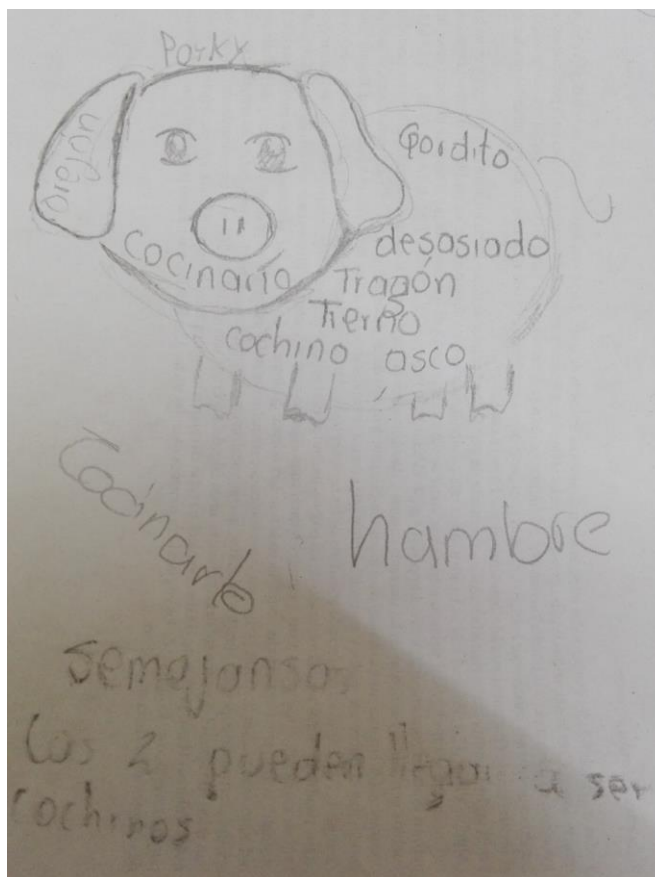 Porky
orejon
Gordito
desasiado
cocinaría
Tragón
Tierno
cochino asco
Cocinarlo
hambre
semejansas
Los 2 pueden llegar a ser
cochinos